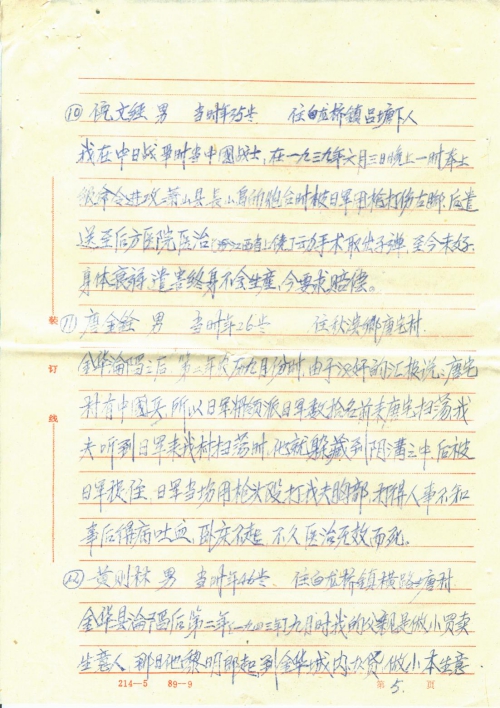 ⑩ 倪文经 男 当时年35岁 住白龙桥镇吕塘下人
我在中日战争时当中国战士,在一九三九年六月三日晚上一时奉上
级命令进攻萧山县长山马的炮台时被日军用枪打伤左脚,后遣
送至后方医院医治(浙江西省上饶)动手术取出子弹,至今未好
身体衰弱,遗害终身不会生产,今要求赔偿。
⑪ 唐金铨 男 当时年26岁 住秋滨乡唐宅村
金华沦陷之后,第二年农历九月份时,由于汉奸的汇报说:唐宅
村有中国兵,所以日军带领派日军数拾名前来唐宅扫荡我
夫听到日军来我村扫荡时,他就躲藏到阴沟之中,后被
日军捉住,日军当场用枪头毁打我夫胸部,打得人事不知
事后伤病吐血,卧床不起,不久医治无效而死。
⑫ 黄刚林 男 当时年46岁 住白龙桥镇横路塘村
金华县沦陷后第二年(一九四三年)九月时我的父亲是做小买卖
生意人,那日他黎明即起到金华城内办货做小本生意
装
订
线
214—5 89—9
第 5. 页